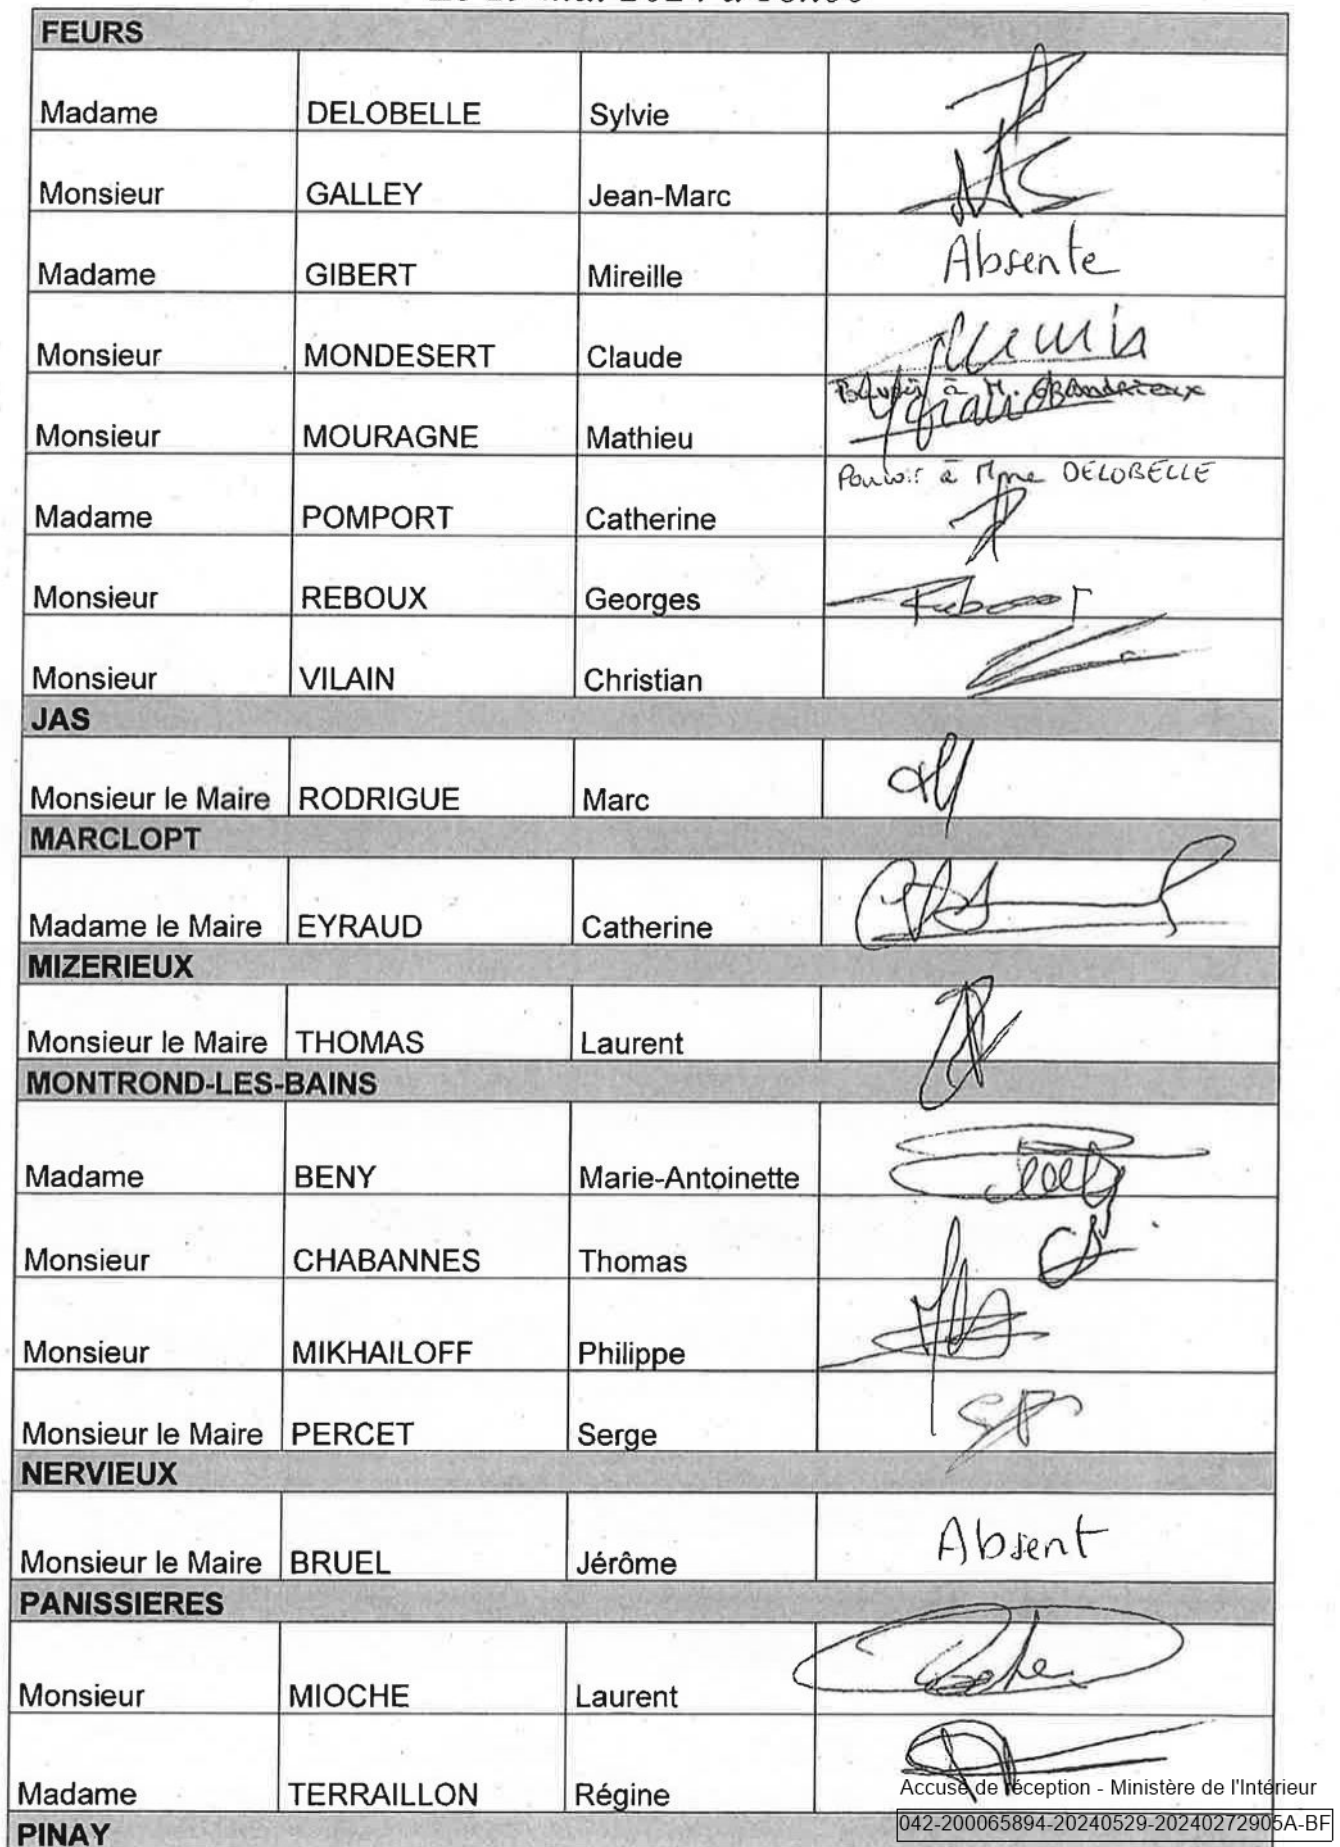 FEURS
Madame DELOBELLE Sylvie
Monsieur GALLEY Jean-Marc
Madame GIBERT Mireille Absente
Monsieur MONDESERT Claude
Pouvoir à M. GRANDRIEUX
Monsieur MOURAGNE Mathieu
Pouvoir à Mme DELOBELLE
Madame POMPORT Catherine
Monsieur REBOUX Georges
Monsieur VILAIN Christian
JAS
Monsieur le Maire RODRIGUE Marc
MARCLOPT
Madame le Maire EYRAUD Catherine
MIZERIEUX
Monsieur le Maire THOMAS Laurent
MONTROND-LES-BAINS
Madame BENY Marie-Antoinette
Monsieur CHABANNES Thomas
Monsieur MIKHAILOFF Philippe
Monsieur le Maire PERCET Serge
NERVIEUX
Monsieur le Maire BRUEL Jérôme Absent
PANISSIERES
Monsieur MIOCHE Laurent
Madame TERRAILLON Régine
Accusé de réception - Ministère de l'Intérieur
042-200065894-20240529-20240272905A-BF
PINAY